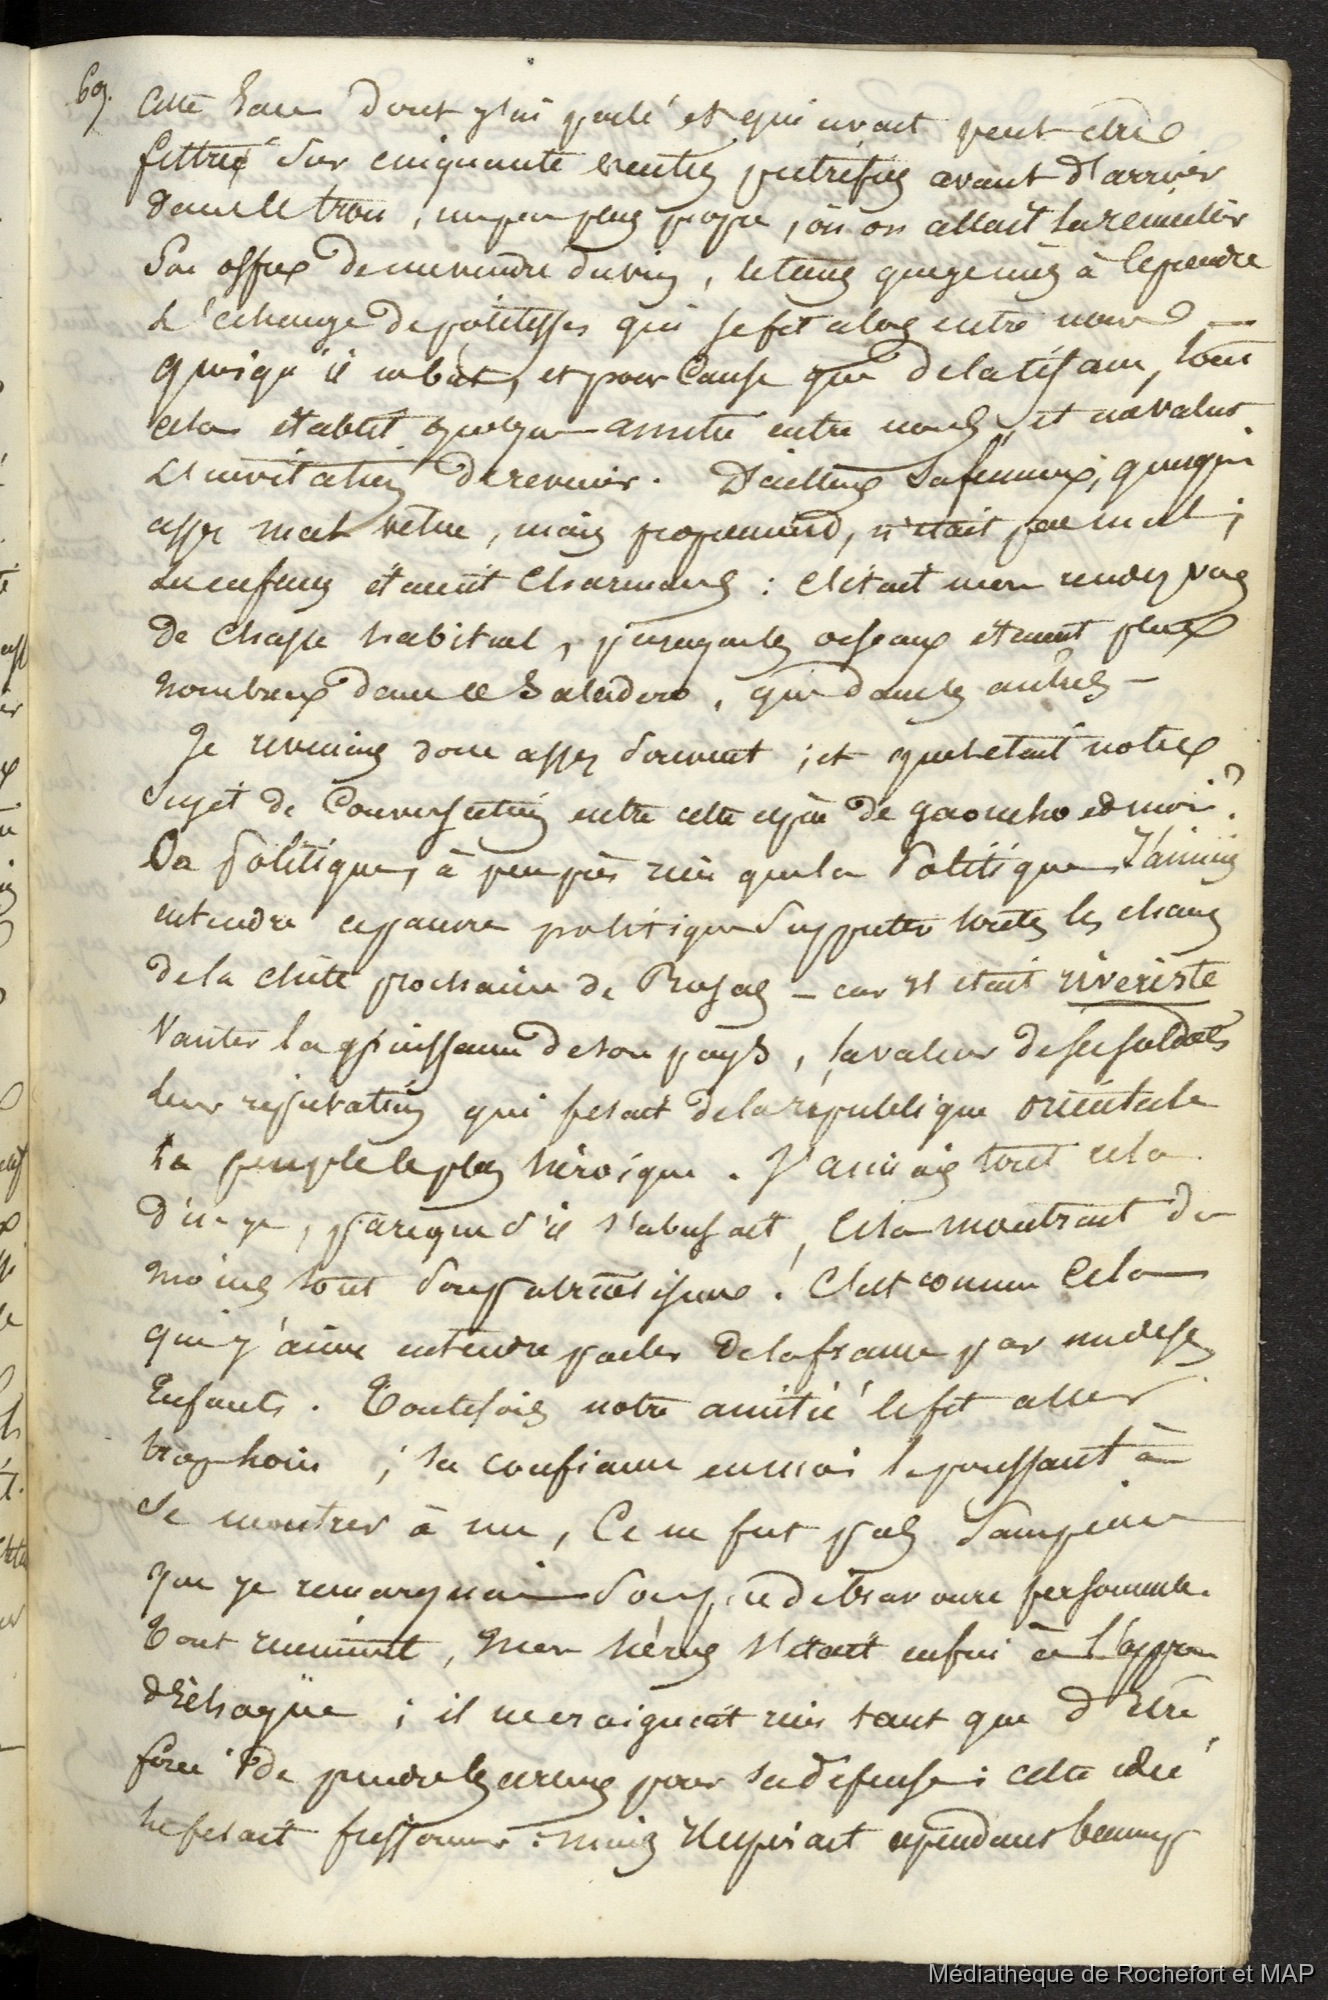 69.
Cette eau dont j'ai parlé et qui avait peut être
filtrée sur cinquante ventres putréfiés avant d'arriver
dans le trou, un peu plus propre, où on allait la recueillir
Son offre de me vendre du vin, le temps que je mis à le prendre
L'échange de politesses qui se fit alors entre nous —
quoiqu'il ne bût, et pour cause que de la tisane, tout
cela établit quelque amitié entre nous, et me valut
L'invitation de revenir. D'ailleurs sa femme, quoique
assez mal vêtue, mais proprement, n'était pas mal ;
Les enfans étaient charmans : C'était mon rendez vous
de chasse habituel, puisque les oiseaux étaient plus
nombreux dans ce Saladero, que dans les autres —
Je revenais donc assez souvent ; et quel était notre
sujet de Conversation entre cette espèce de gaoucho et moi ?
La Politique, à peu près rien que la Politique. J'aimais
entendre ce pauvre politique supputer toutes les chances
de la chûte prochaine de Rosas — car il était riveriste
Vanter la puissance de son pays, la valeur de ses soldats
leur réputation qui fesait de la république orientale
Le peuple le plus héroïque. J'aimais tout cela
d'un gaoucho, parceque s'il s'abusait, Cela montrait du
moins tout son patriotisme ! C'est comme Cela
que j'aime entendre parler de la france par un de ses
Enfants. Toutefois notre amitié le fit aller
trop loin ; sa confiance en moi le poussant à
se montrer à nu, Ce ne fut pas sans peine
que je remarquai son peu de bravoure personnelle.
Tout récemment, Mon héros s'était enfui à l'appro
d'Echagüe ; il ne craignait rien tant que d'Etre
forcé de prendre les armes pour sa défense : cette idée
le fesait frissonner : mais Il espérait cependant beaucoup
Médiathèque de Rochefort et MAP